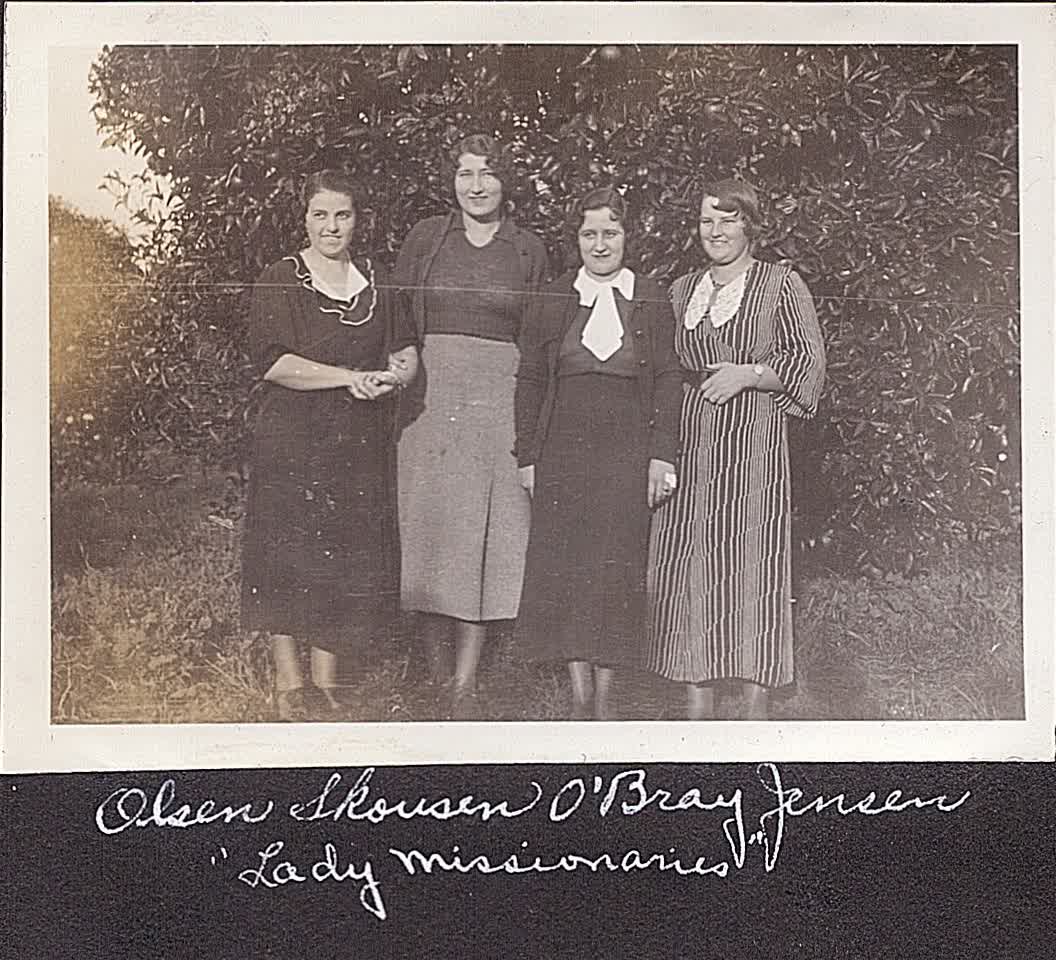 Olsen Skousen O'Bray Jensen
"Lady Missionaries"